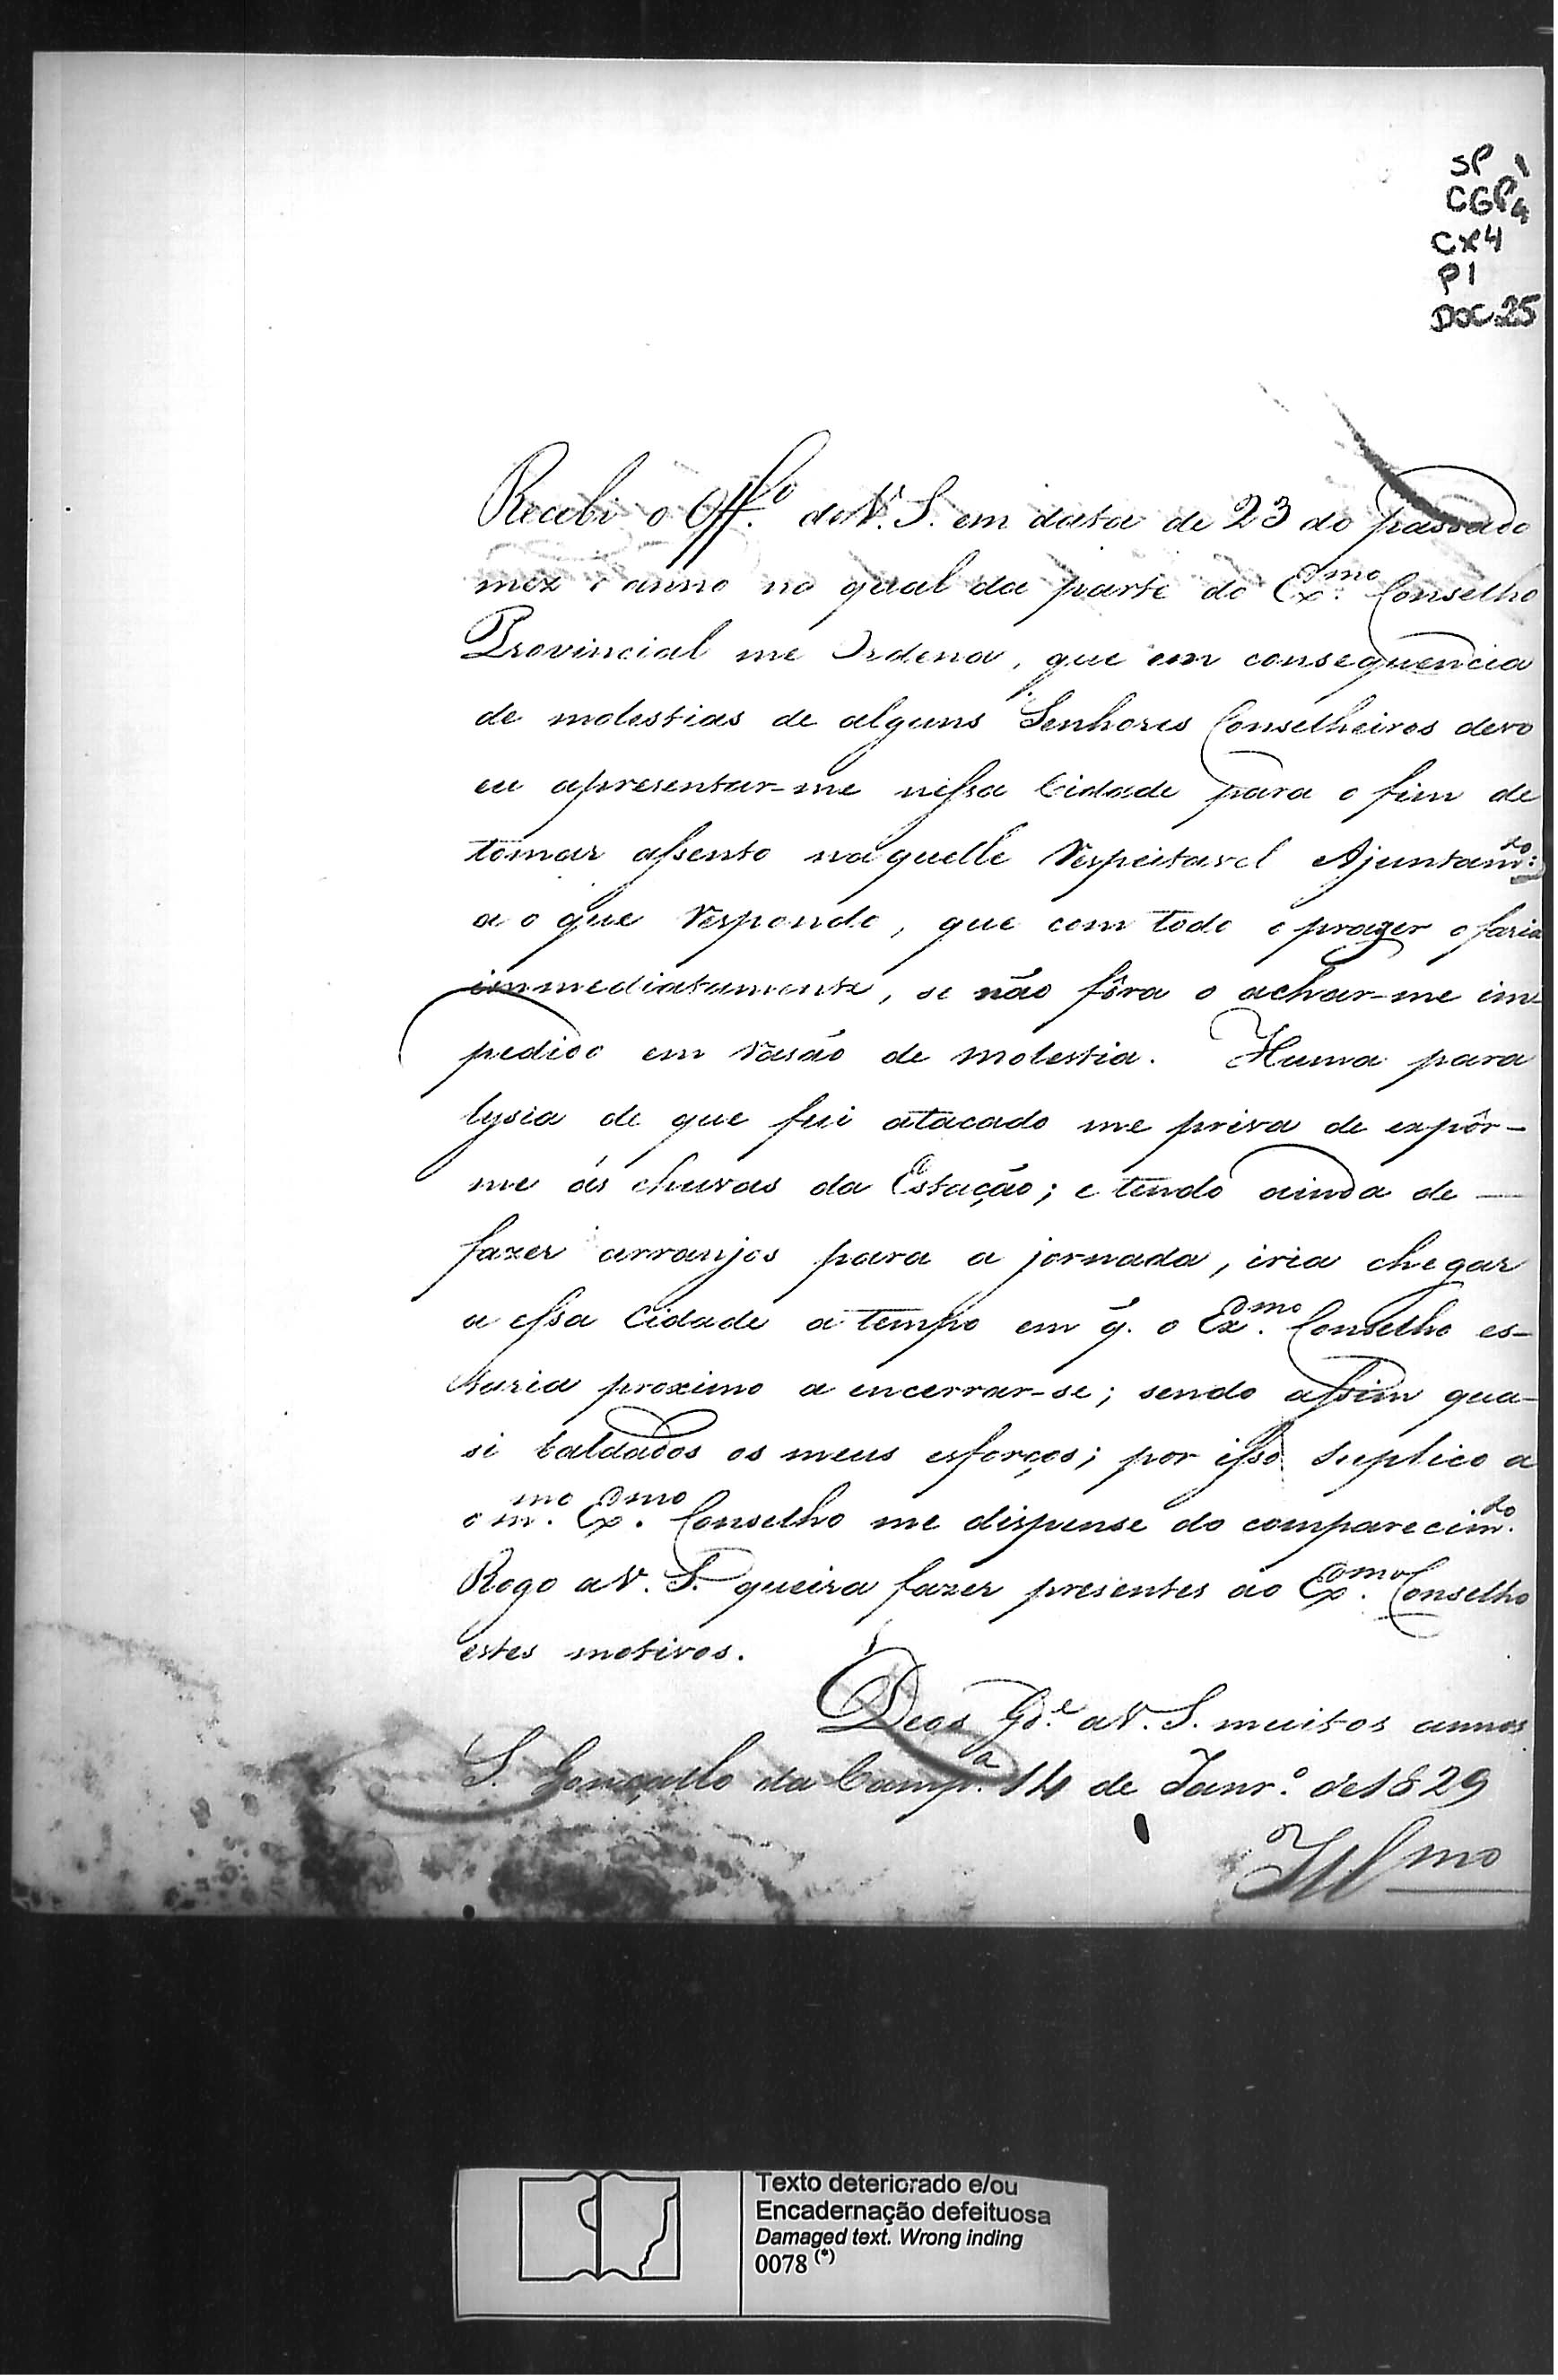 SP 1
CGP4
CX4
P1
DOC.25
Recebi o Off.º de V. S. em data de 23 do passado
mez e anno no qual da parte do Ex.mo Conselho
Provincial me Ordena, que em consequencia
de molestias de alguns Senhores Conselheiros devo
eu apresentar-me nessa Cidade para o fim de
tomar assento naquelle Respeitavel Ajuntam.to:
ao que Respondo, que com todo o prazer o faria
immediatamente, se não fôra o achar-me im-
pedido em Rasão de molestia. Huma para
lysia de que fui atacado me priva de expôr-
me ás chuvas da Estação; e tendo ainda de
fazer arranjos para a jornada, iria chegar
a essa Cidade a tempo em q̃. o Ex.mo Conselho es-
taria proximo a encerrar-se; sendo assim qua-
si baldados os meus esforços; por isso suplico a
o m.mo Ex.mo Conselho me dispense do comparecim.to
Rogo a V. S. queira fazer presentes ao Ex.mo Conselho
estes motivos.
Deos G.de a V. S. muitos annos
S. Gonçallo da Camp.a 14 de Janr.º de 1829
Ill.mo
Texto deteriorado e/ou
Encadernação defeituosa
Damaged text. Wrong inding
0078 (*)